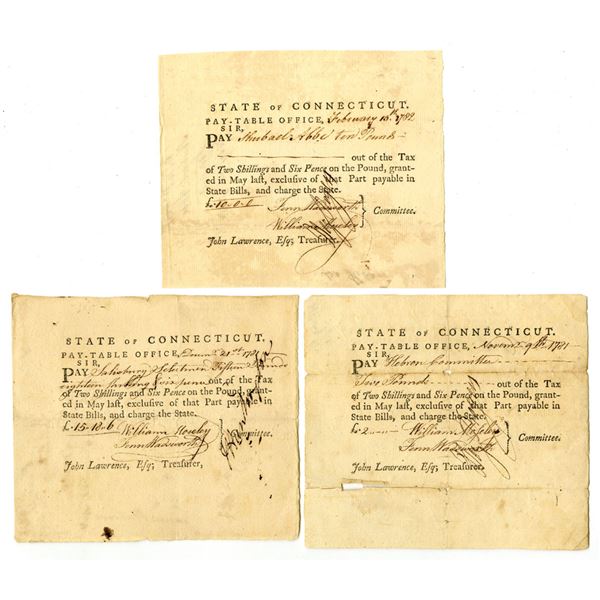 STATE OF CONNECTICUT.
PAY-TABLE OFFICE, February 18th 1782
SIR,
PAY Shubael Abbe ten Pounds
out of the Tax
of Two Shillings and Six Pence on the Pound, grant-
ed in May last, exclusive of that Part payable in
State Bills, and charge the State.
£.10-0-0 Fenn Wadsworth
William Moseley } Committee.
John Lawrence, Esq; Treasurer.
STATE OF CONNECTICUT.
PAY-TABLE OFFICE, 21st 1781
SIR,
PAY Salisbury Selectmen Fifteen Pounds
eighteen shillings & six pence out of the Tax
of Two Shillings and Six Pence on the Pound, grant-
ed in May last, exclusive of that Part payable in
State Bills, and charge the State.
£.15-18-6 William Moseley
Fenn Wadsworth } Committee.
John Lawrence, Esq; Treasurer,
STATE OF CONNECTICUT.
PAY-TABLE OFFICE, Novemr 9th 1781
SIR,
PAY Hebron Committee
Two Pounds out of the Tax
of Two Shillings and Six Pence on the Pound, grant-
ed in May last, exclusive of that Part payable in
State Bills, and charge the State.
£.2 William Moseley
Fenn Wadsworth } Committee.
John Lawrence, Esq; Treasurer.